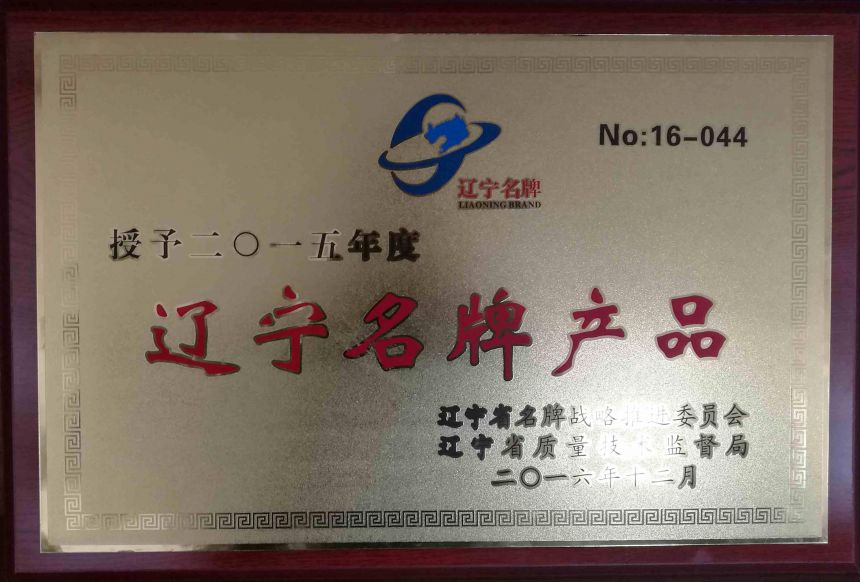 No:16-044
辽宁名牌
LIAONING BRAND
授予二〇一五年度
辽宁名牌产品
辽宁省名牌战略推进委员会
辽宁省质量技术监督局
二〇一六年十二月